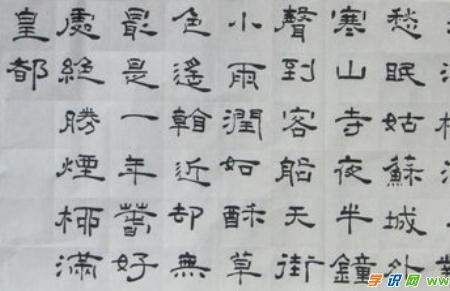 愁眠姑蘇城外
寒山寺夜半鐘
聲到客船天街
小雨潤如酥草
色遙翰近却無
最是一年萅好
處絕勝煙桺滿
皇都
学识网
www